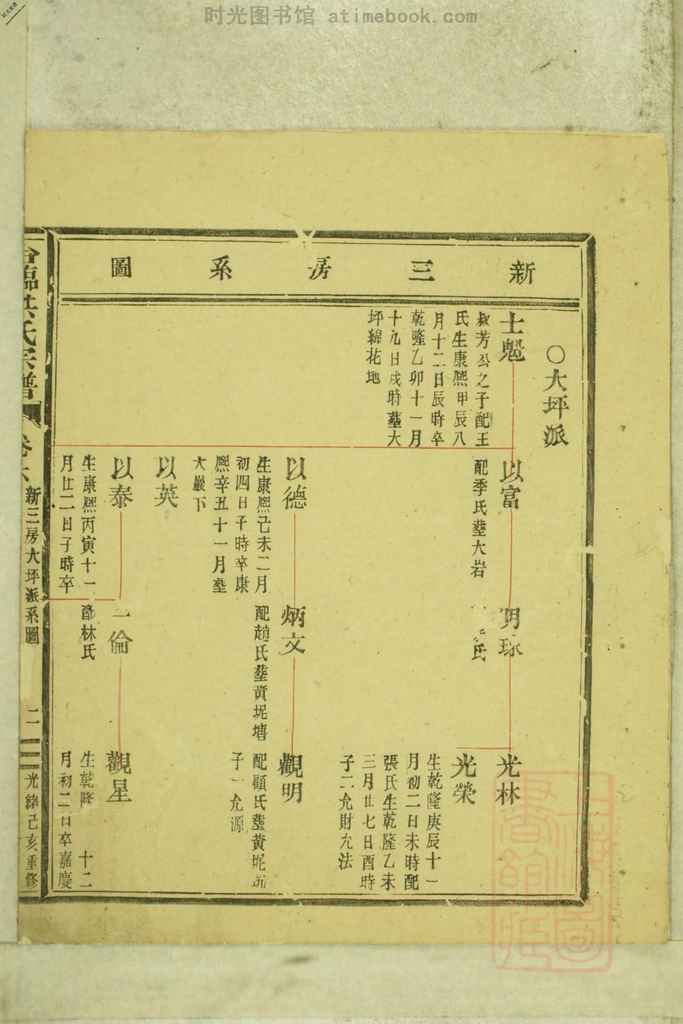 时光图书馆 atimebook.com
新三房系圖
○大坪派
士魁
叔芳公之子配王
氏生康熙甲辰八
月十二日辰時卒
乾隆乙卯十一月
十九日戌時墓大
坪綿花地
以富
配季氏塟大岩
氏
光林
光榮
生乾隆庚辰十一
月初二日未時配
張氏生乾隆乙未
三月廿七日酉時
子二允財允法
以德
生康熙己未二月
初四日子時卒康
熙辛丑十一月塟
大巖下
炳文
配趙氏塟黃坭塘
觀明
配顧氏塟黃坭
子一允源
以英
以泰
生康熙丙寅十一
月廿二日子時卒
倫
配林氏
觀星
生乾隆 十二
月初二日卒嘉慶
臨洪氏宗譜
卷六
新三房大坪派系圖
二
光緒己亥重修